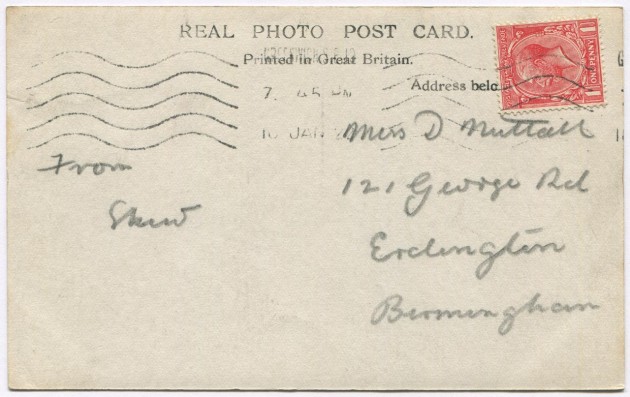 REAL PHOTO POST CARD.
Printed in Great Britain.
Address below
7 45 PM
10 JAN
ONE PENNY
From
Miss D Nuttall
121 George Rd
Erdington
Birmingham